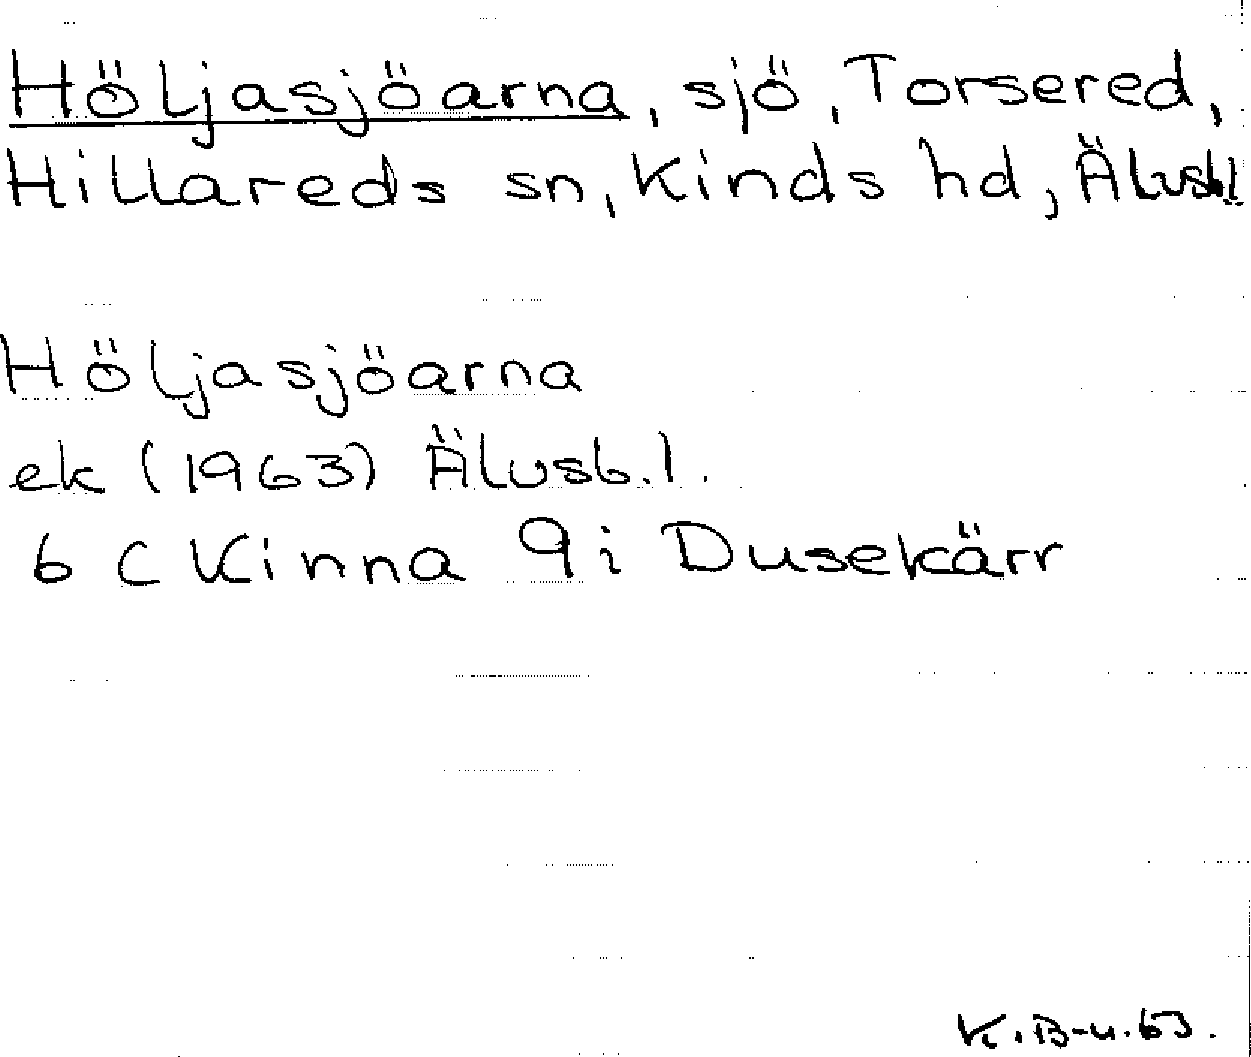 Höljasjöarna, sjö, Torsered,
Hillareds sn, Kinds hd, Älvsb.l.
Höljasjöarna
ek (1963) Älvsb.l.
6 C Kinna 9 i Dusekärr
K.B-u.63.